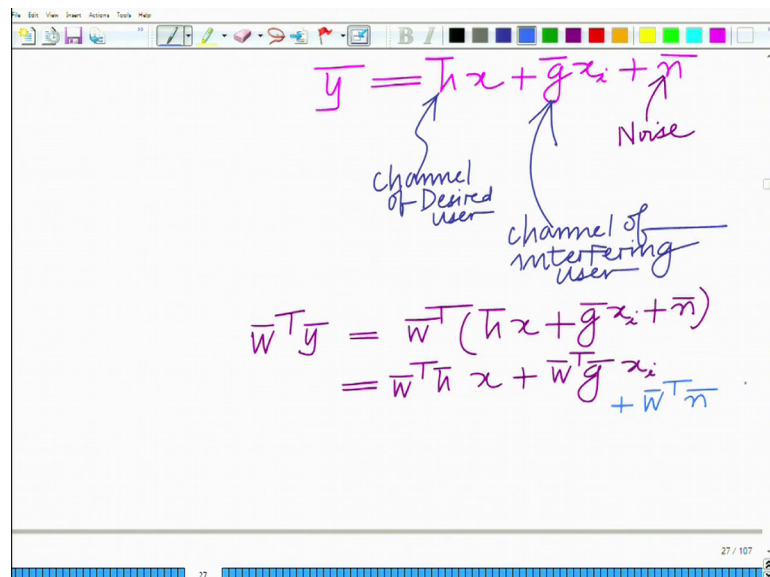 File Edit View Insert Actions Tools Help
B I
y̅ = h̅x + g̅xᵢ + n̅
Noise
channel
of Desired
user
channel of
interfering
user
w̅ᵀy̅ = w̅ᵀ(h̅x + g̅xᵢ + n̅)
= w̅ᵀh̅ x + w̅ᵀg̅ xᵢ
+ w̅ᵀn̅
27 / 107
27